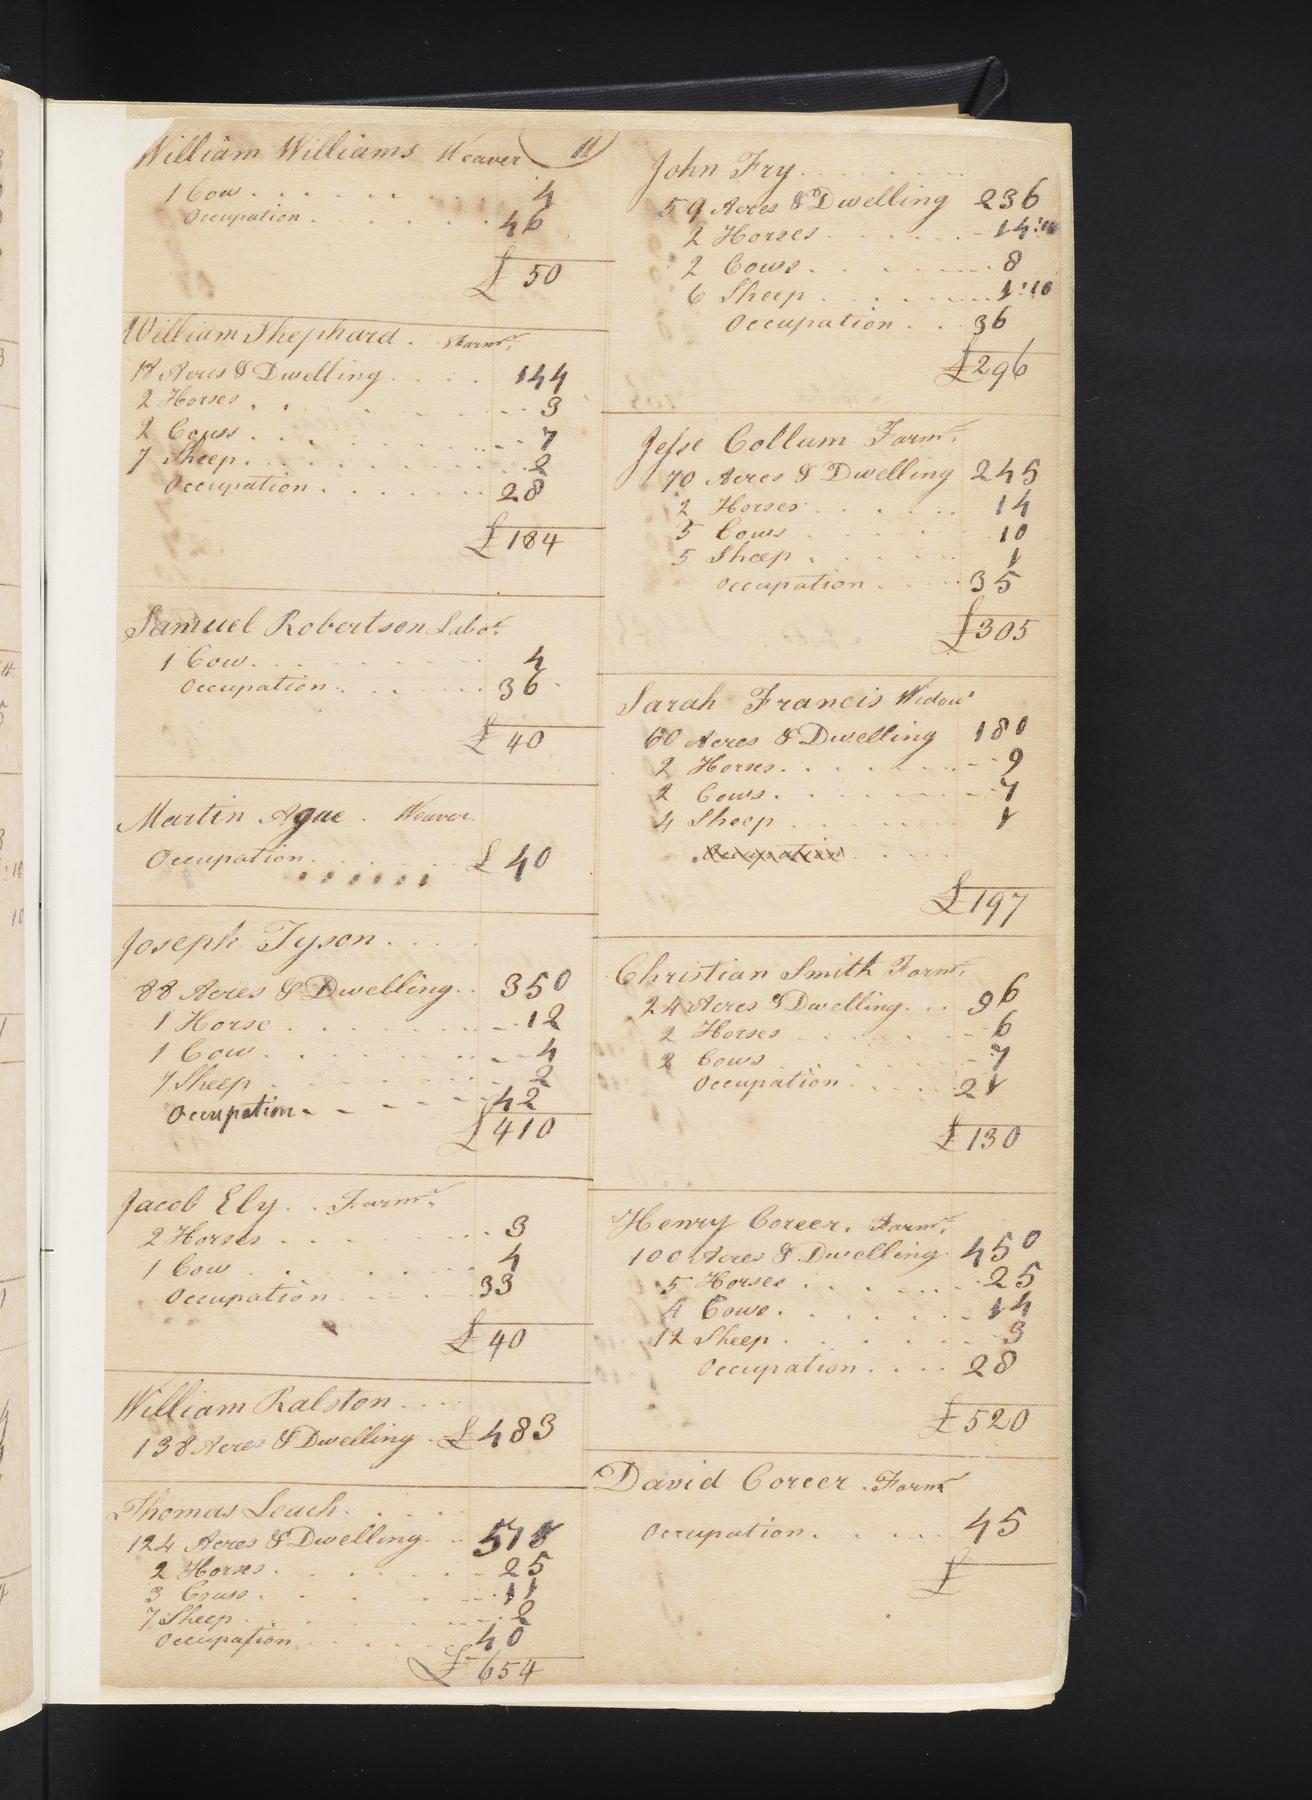 11
William Williams Weaver
1 Cow . . . . . . 4
Occupation . . . . . . 46
£ 50
William Shephard . Farmr.
18 Acres & Dwelling . . . . 144
2 Horses . . . . . . 3
2 Cows . . . . . . 7
7 Sheep . . . . . . 2
Occupation . . . . . . 28
£ 184
Samuel Robertson Labor.
1 Cow . . . . . . 4
Occupation . . . . . 36
£ 40
Martin Ague . Weaver
Occupation . . . . . . £ 40
Joseph Tyson . . . .
88 Acres & Dwelling . . 350
1 Horse . . . . . . 12
1 Cow . . . . . . 4
7 Sheep . . . . . . 2
Occupation - - - - - 42
£ 410
Jacob Ely . . Farmr.
2 Horses . . . . . . 3
1 Cow . . . . . . 4
Occupation . . . . . 33
£ 40
William Ralston . . . .
138 Acres & Dwelling . £ 483
Thomas Leach . . . . .
124 Acres & Dwelling . . 578
2 Horses . . . . . . 25
3 Cows . . . . . . 11
7 Sheep . . . . . . 2
Occupation . . . . . 40
£ 654
John Fry . . . . . . .
59 Acres & Dwelling 236
2 Horses . . . . . 14:10
2 Cows . . . . . . 8
6 Sheep . . . . . 1:10
Occupation . . . 36
£ 296
Jesse Collum Farmr.
70 Acres & Dwelling 245
2 Horses . . . . . 14
3 Cows . . . . . 10
5 Sheep . . . . . 1
Occupation . . . . 35
£ 305
Sarah Francis Widow
60 Acres & Dwelling 180
2 Horses . . . . . . 9
2 Cows . . . . . . 7
4 Sheep . . . . . . 1
Occupation . . . .
£ 197
Christian Smith Farmr.
24 Acres & Dwelling . . . 96
2 Horses . . . . . 6
2 Cows . . . . . 7
Occupation . . . . 21
£ 130
Henry Coreer . Farmr.
100 Acres & Dwelling 450
5 Horses . . . . . . 25
4 Cows . . . . . . 14
12 Sheep . . . . . . 3
Occupation . . . . 28
£ 520
David Coreer . Farmr
Occupation . . . . . 45
£